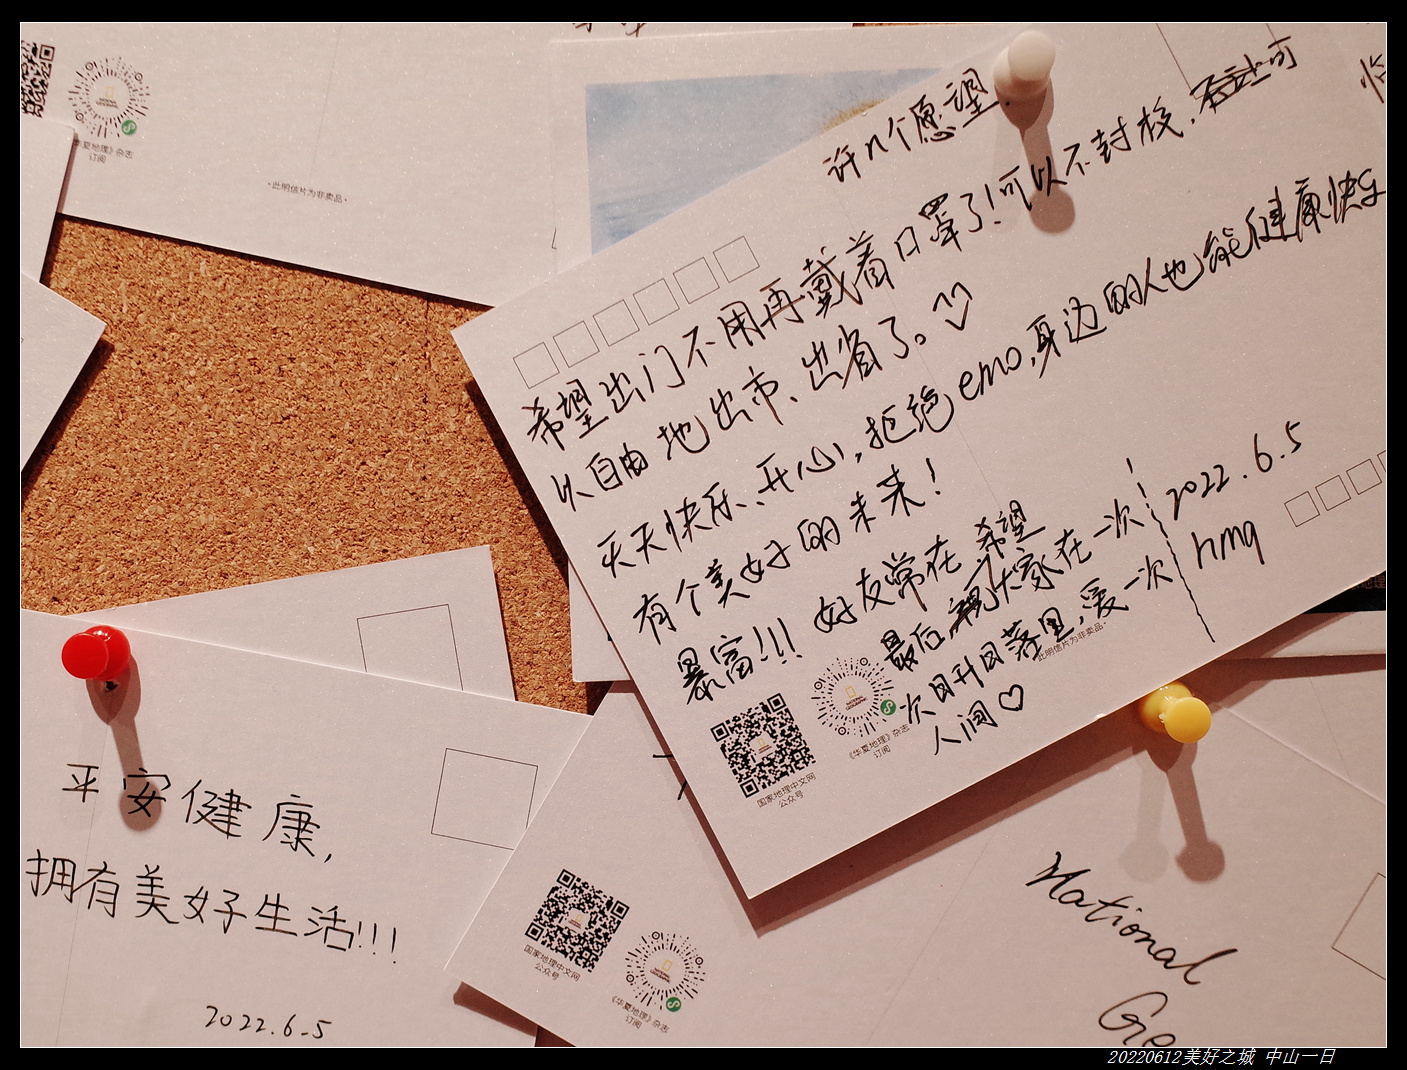 《华夏地理》杂志
订阅
·此明信片为非卖品·
许n个愿望.
希望出门不用再戴着口罩了!可以不封校,
以自由地出市、出省了。♡
天天快乐、开心,拒绝emo,身边的人也能健康快乐
有个美好的未来!
暴富!!! 好友常在
希望
最后,大家在一次
次日升日落里,爱一次
人间♡
2022.6.5
hmq
·此明信片为非卖品·
国家地理中文网
公众号
《华夏地理》杂志
订阅
平安健康,
拥有美好生活!!!
2022.6.5
国家地理中文网
公众号
《华夏地理》杂志
订阅
National
Ge
20220612美好之城 中山一日